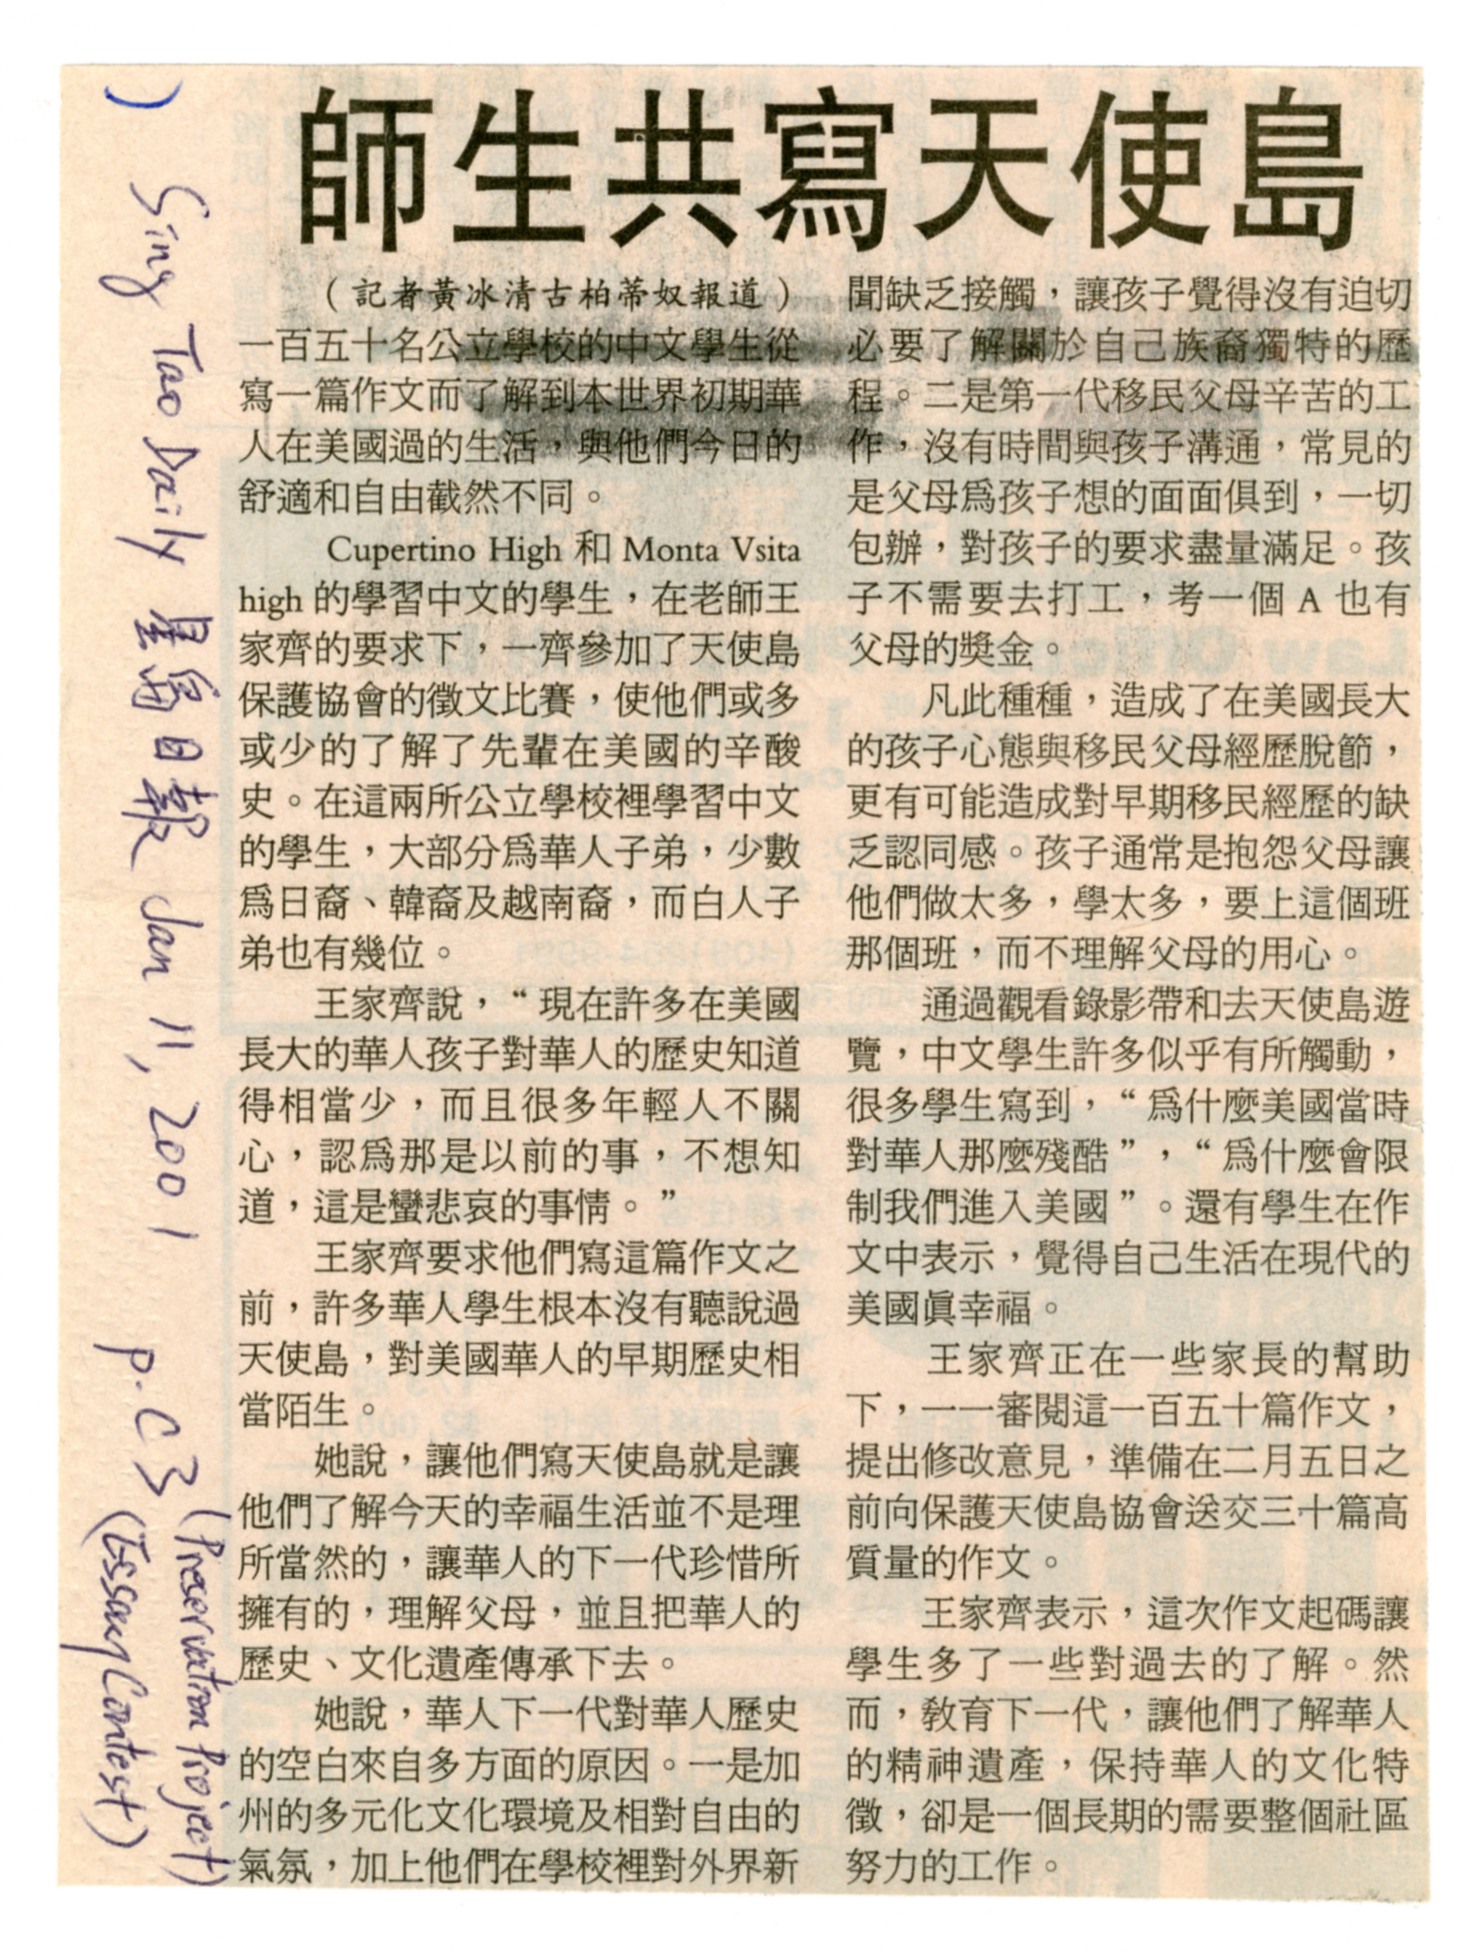 師生共寫天使島
（記者黃冰清古柏蒂奴報道）
一百五十名公立學校的中文學生從
寫一篇作文而了解到本世界初期華
人在美國過的生活，與他們今日的
舒適和自由截然不同。
Cupertino High 和 Monta Vsita
high 的學習中文的學生，在老師王
家齊的要求下，一齊參加了天使島
保護協會的徵文比賽，使他們或多
或少的了解了先輩在美國的辛酸
史。在這兩所公立學校裡學習中文
的學生，大部分爲華人子弟，少數
爲日裔、韓裔及越南裔，而白人子
弟也有幾位。
王家齊說，“現在許多在美國
長大的華人孩子對華人的歷史知道
得相當少，而且很多年輕人不關
心，認爲那是以前的事，不想知
道，這是蠻悲哀的事情。”
王家齊要求他們寫這篇作文之
前，許多華人學生根本沒有聽說過
天使島，對美國華人的早期歷史相
當陌生。
她說，讓他們寫天使島就是讓
他們了解今天的幸福生活並不是理
所當然的，讓華人的下一代珍惜所
擁有的，理解父母，並且把華人的
歷史、文化遺產傳承下去。
她說，華人下一代對華人歷史
的空白來自多方面的原因。一是加
州的多元化文化環境及相對自由的
氣氛，加上他們在學校裡對外界新
聞缺乏接觸，讓孩子覺得沒有迫切
必要了解關於自己族裔獨特的歷
程。二是第一代移民父母辛苦的工
作，沒有時間與孩子溝通，常見的
是父母爲孩子想的面面俱到，一切
包辦，對孩子的要求盡量滿足。孩
子不需要去打工，考一個 A 也有
父母的獎金。
凡此種種，造成了在美國長大
的孩子心態與移民父母經歷脫節，
更有可能造成對早期移民經歷的缺
乏認同感。孩子通常是抱怨父母讓
他們做太多，學太多，要上這個班
那個班，而不理解父母的用心。
通過觀看錄影帶和去天使島遊
覽，中文學生許多似乎有所觸動，
很多學生寫到，“爲什麼美國當時
對華人那麼殘酷”，“爲什麼會限
制我們進入美國”。還有學生在作
文中表示，覺得自己生活在現代的
美國眞幸福。
王家齊正在一些家長的幫助
下，一一審閱這一百五十篇作文，
提出修改意見，準備在二月五日之
前向保護天使島協會送交三十篇高
質量的作文。
王家齊表示，這次作文起碼讓
學生多了一些對過去的了解。然
而，敎育下一代，讓他們了解華人
的精神遺產，保持華人的文化特
徵，卻是一個長期的需要整個社區
努力的工作。
Sing Tao Daily 星島日報 Jan 11, 2001 p. C3 (Preservation Project)
(Essay Contest)